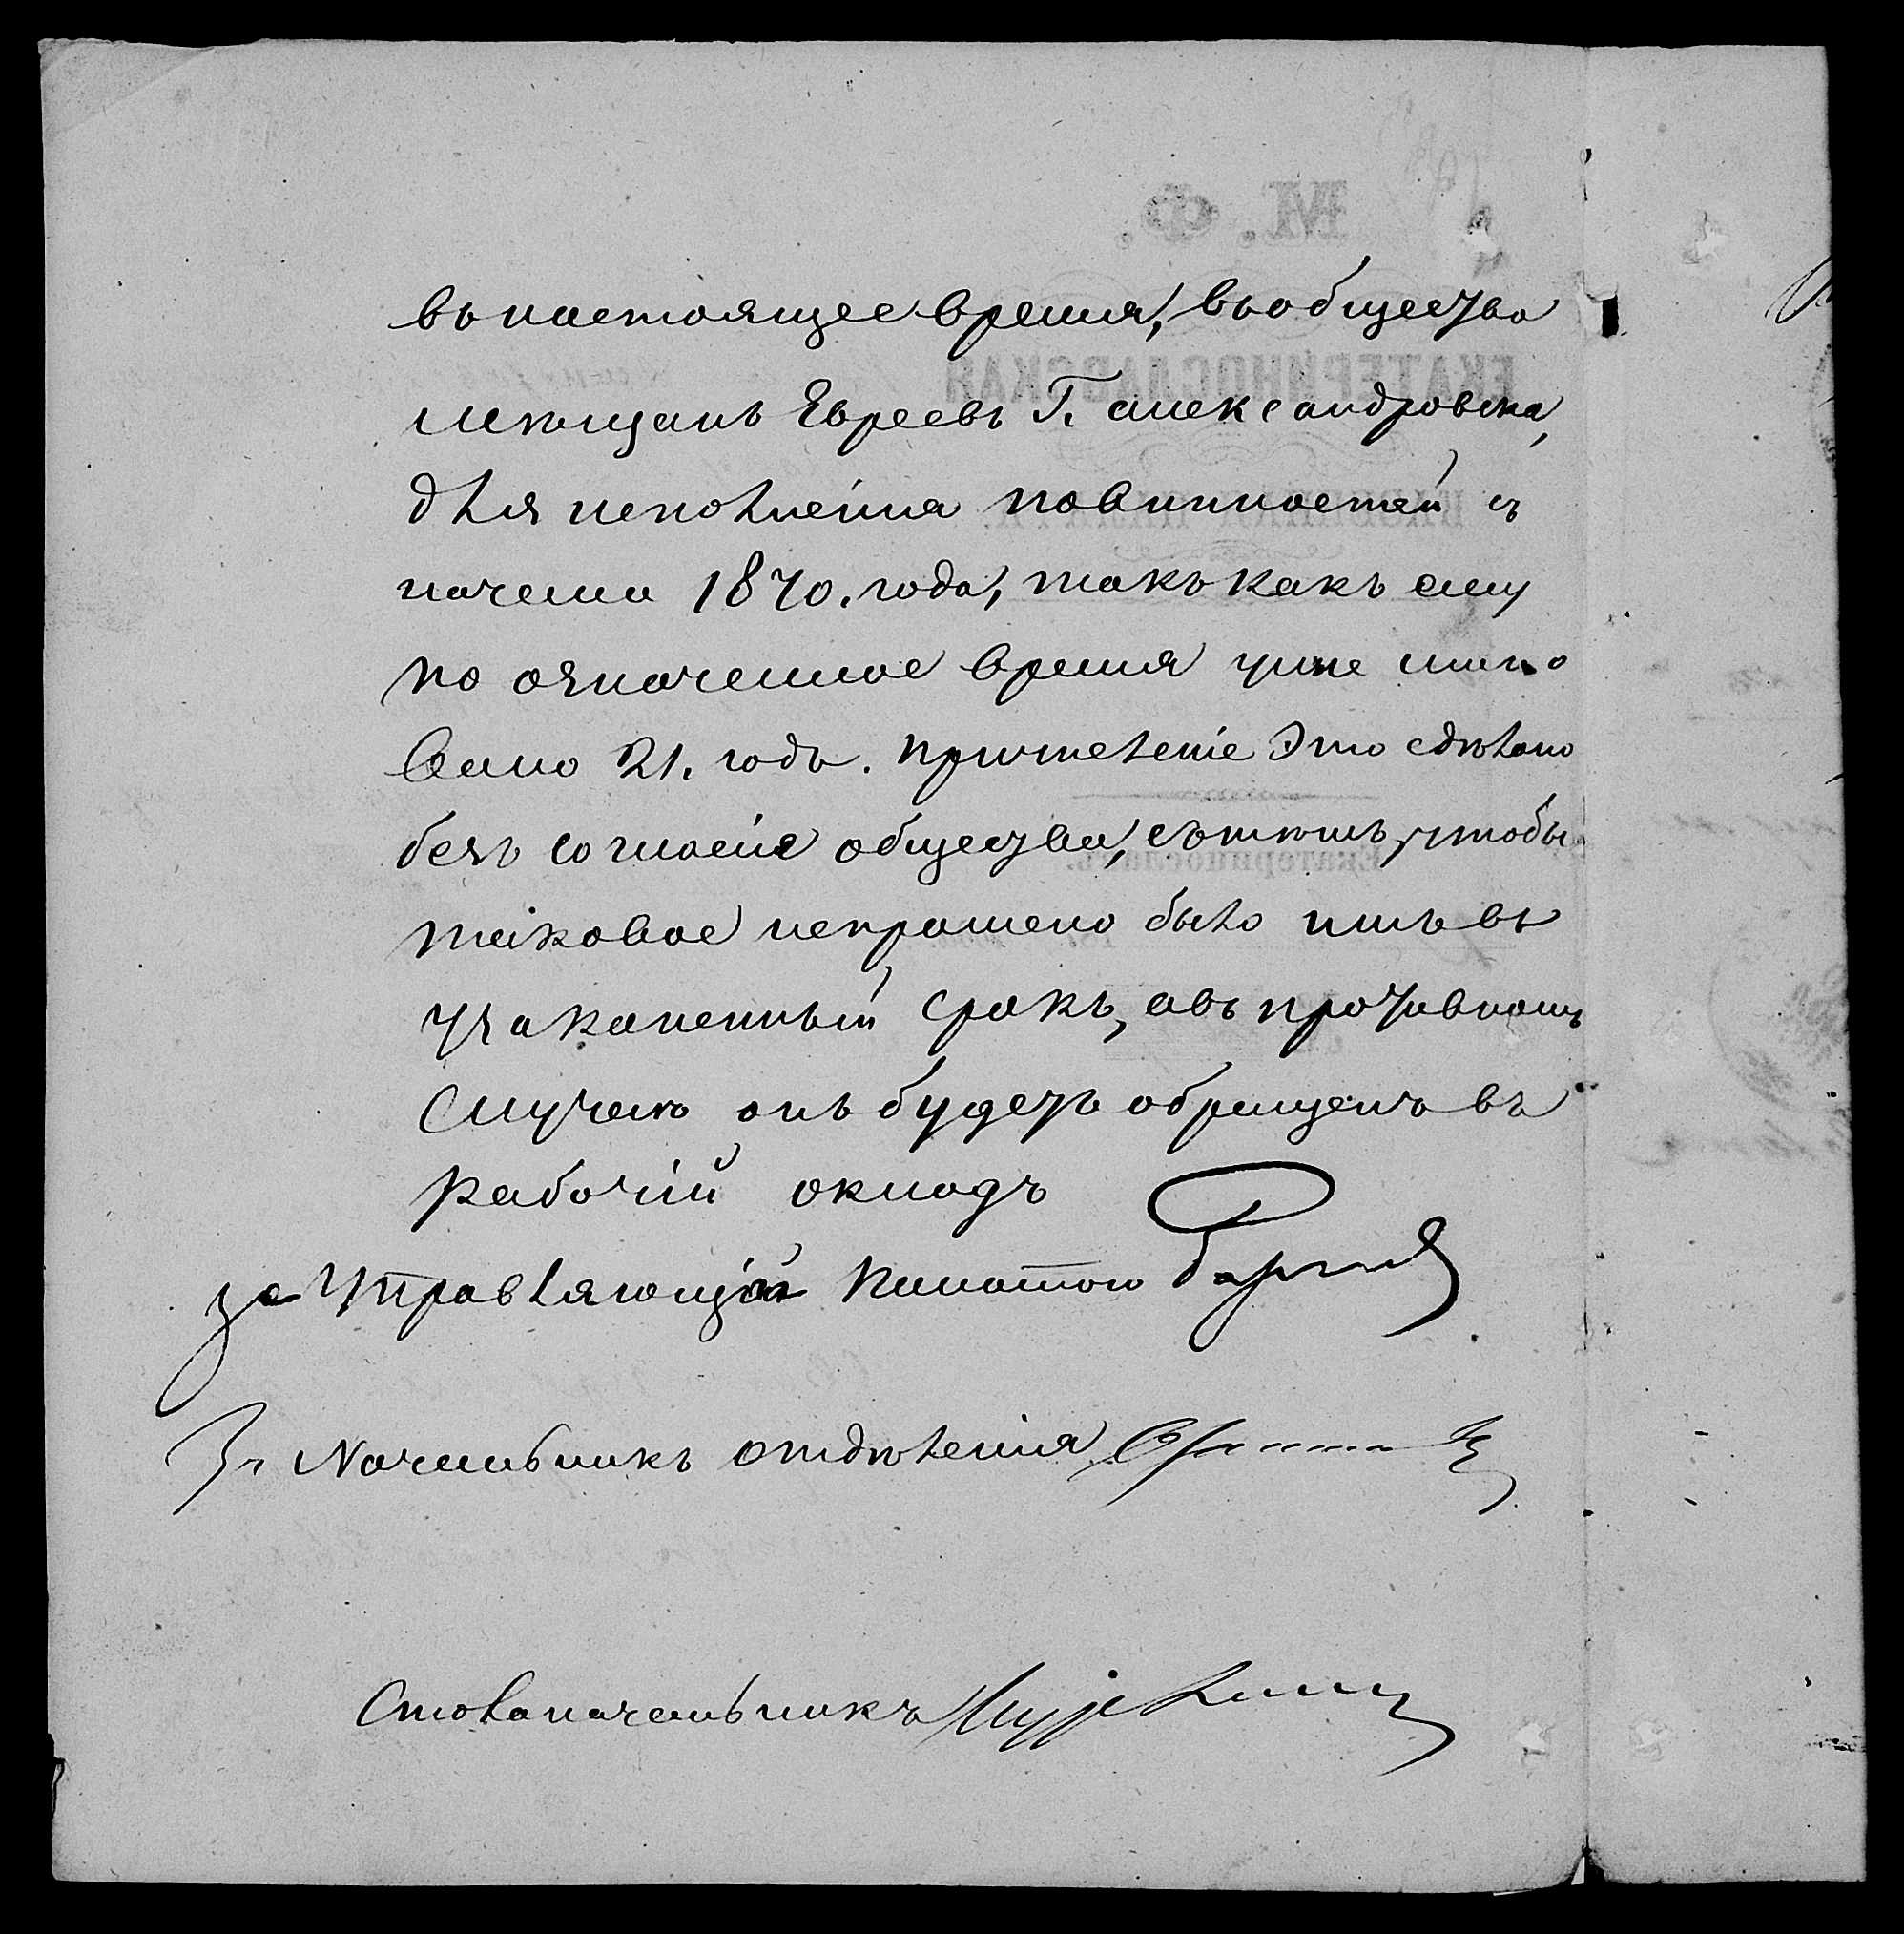 въ настоящее время, въ общество
мѣщанъ Евреевъ Г. Александровска,
для исполненія повинностей съ
начала 1870. года, такъ какъ ему
по означенное время уже мино
вало 21. годъ. Причисленіе это сдѣлано
безъ согласія общества, съ тѣмъ, чтобы
таковое испрошено было имъ въ
узаконенный срокъ, а въ противномъ
случаѣ онъ будетъ обращенъ въ
рабочій окладъ
за Управляющій Палатою
За Начальникъ отдѣленія
Столоначальникъ
М. Ф.
ЕКАТЕРИНОСЛАВСКАЯ
КАЗЕННАЯ ПАЛАТА.
Екатеринославъ.